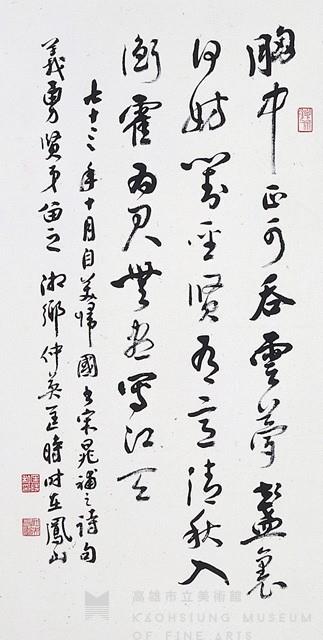 胸中正可吞雲夢盞裏
何妨對聖賢有意清秋入
衡霍為君無盡寫江天
七十三年十月自美歸國書宋晁補之詩句
義勇賢弟留之 湘鄉仲英匡時時在鳳山
高雄市立美術館
KAOHSIUNG MUSEUM
OF FINE ARTS